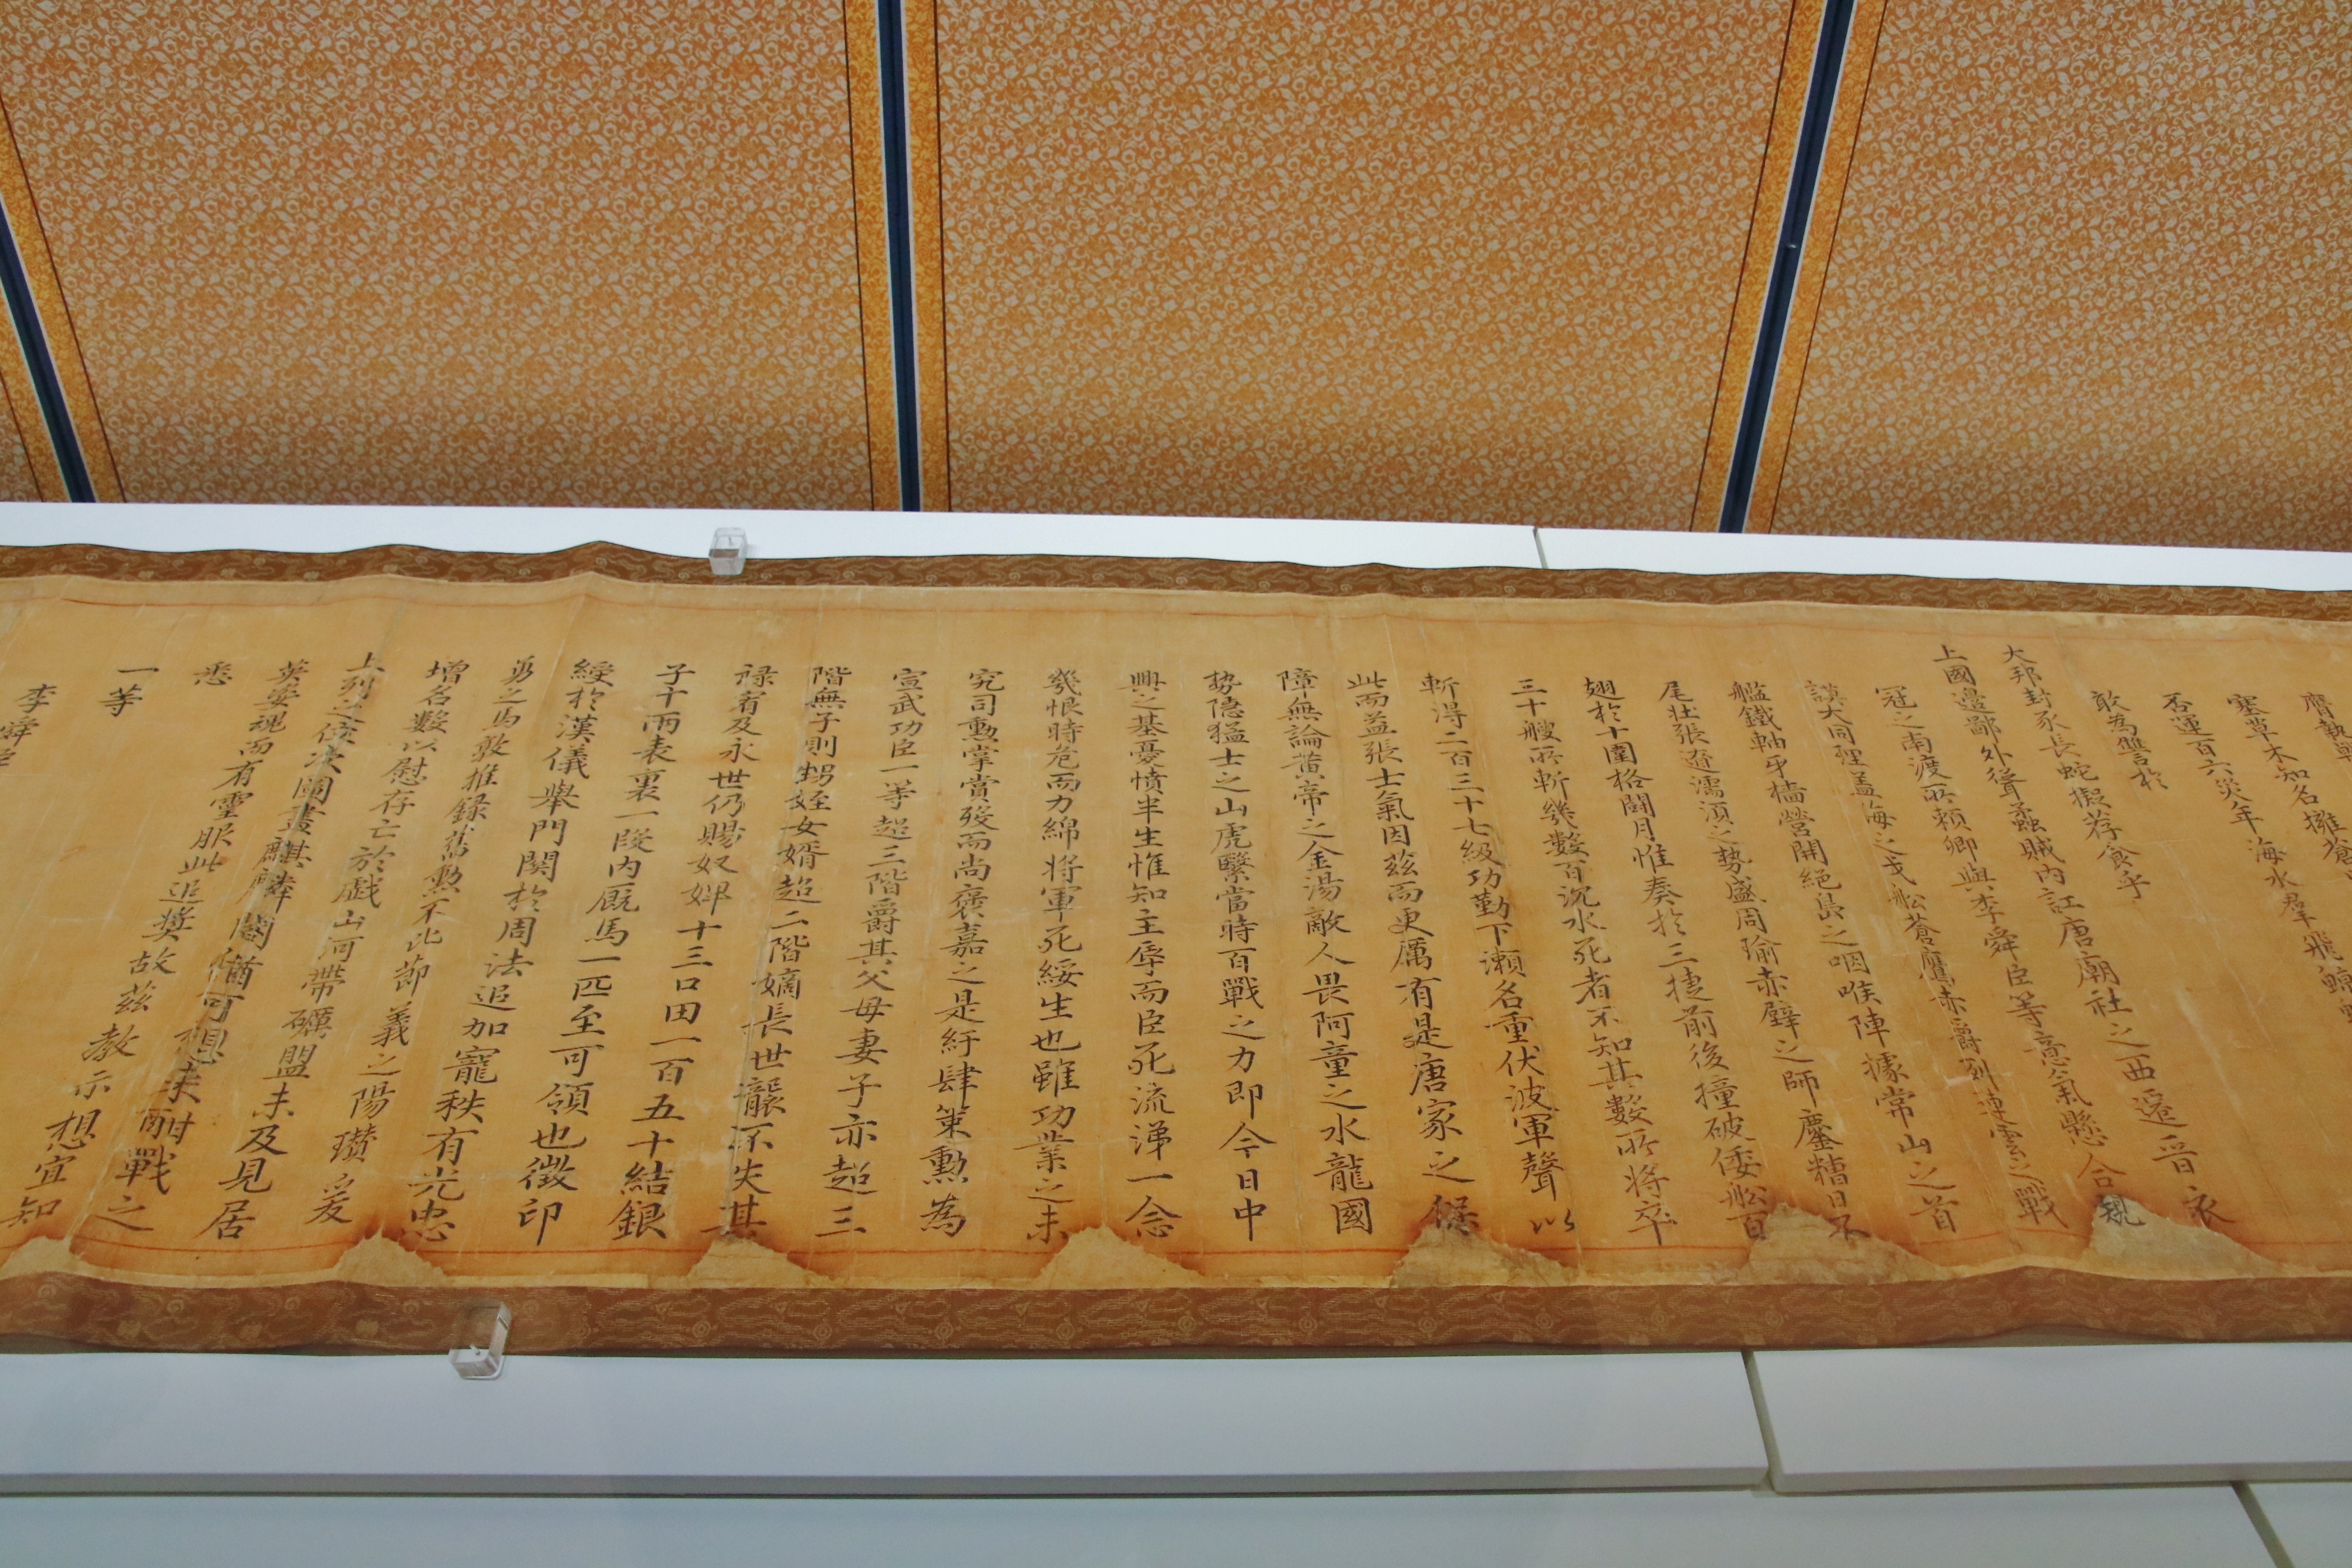 塞草木知名擁蒼
否運百六災年海水羣飛鯨
敢為讐於
大邦封豕長蛇擬荐食乎
上國邊鄙外聳蟊賊內訌唐廟社之西遷晉衣
冠之南渡所賴卿與李舜臣等意氣懸合規
謨大同理蓋海之戈船蒼鷹赤爵列連雲之戰
艦鐵軸牙檣營開絕島之咽喉陣據常山之首
尾壯張遼濡須之勢盛周瑜赤壁之師鏖糟日不
翅於十圍格鬪月惟奏於三捷前後撞破倭船百
三十艘所斬幾數百沉水死者不知其數所將卒
斬得二百三十七級功勤下瀨名重伏波軍聲以
此而益張士氣因茲而更厲有是唐家之保
障無論黃帝之金湯敵人畏阿童之水龍國
勢隱猛士之山虎繄當時百戰之力即今日中
興之基憂憤半生惟知主辱而臣死流涕一念
幾恨時危而力綿將軍死綏生也雖功業之未
究司勳掌賞歿而尚褒嘉之是紆肆策勳為
宣武功臣一等超三階爵其父母妻子亦超三
階無子則甥姪女婿超二階嫡長世襲不失其
祿宥及永世仍賜奴婢十三口田一百五十結銀
子十兩表裏一段內厩馬一匹至可領也徵印
綬於漢儀舉門閥於周法追加寵秩有光忠
勇之馬敦推錄舊勲不比節義之陽瓚爰
增名數以慰存亡於戲山河帶礪盟未及見居
上列之侯次圖畫麒麟閣猶可想未酬戰之
英安魂而有靈服此追獎故茲教示想宜知
悉
一等
李舜臣